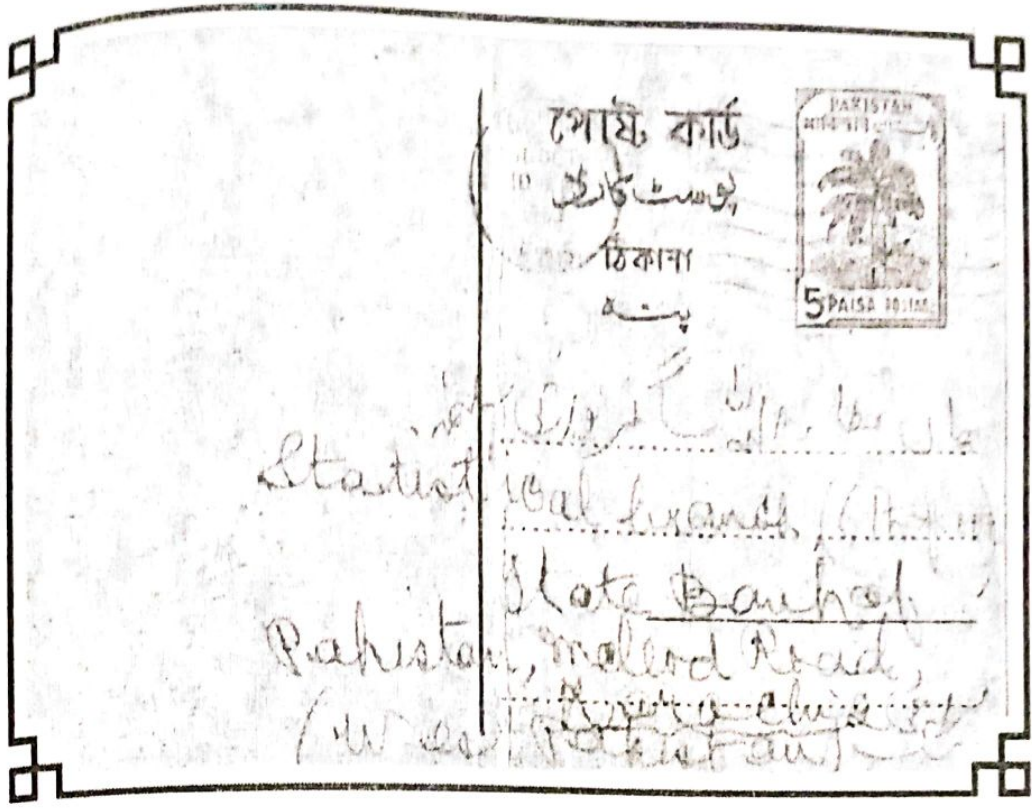 পোষ্ট কার্ড
پوسٹ کارڈ
ঠিকানা
پتہ
PAKISTAN
5 PAISA
Statistical branch,
State Bank of
Pakistan, Mcleod Road,
Karachi
(West Pakistan)